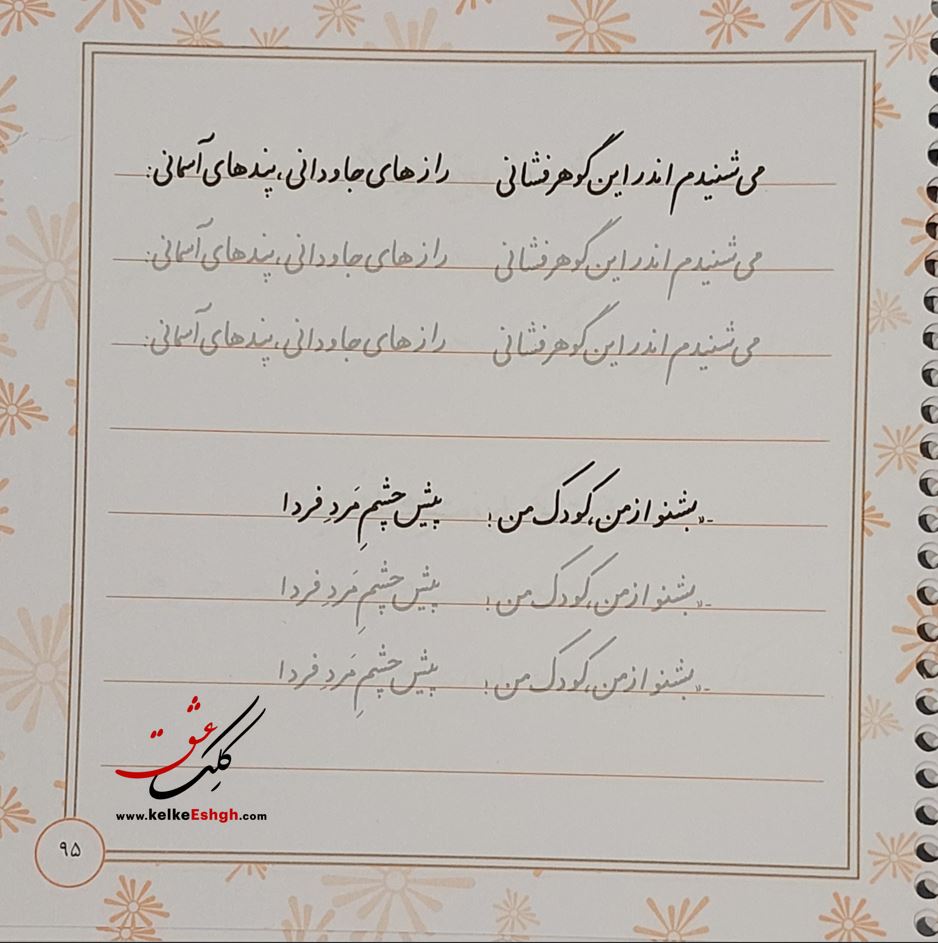 می‌شنیدم اندر این گوهرفشانی رازهای جاودانی، پندهای آسمانی:
می‌شنیدم اندر این گوهرفشانی رازهای جاودانی، پندهای آسمانی:
می‌شنیدم اندر این گوهرفشانی رازهای جاودانی، پندهای آسمانی:
-«بشنو از من، کودک من؛ پیش چشمِ مَردِ فردا
-«بشنو از من، کودک من؛ پیش چشمِ مَردِ فردا
-«بشنو از من، کودک من؛ پیش چشمِ مَردِ فردا
کلک عشق
www.kelkeEshgh.com
۹۵